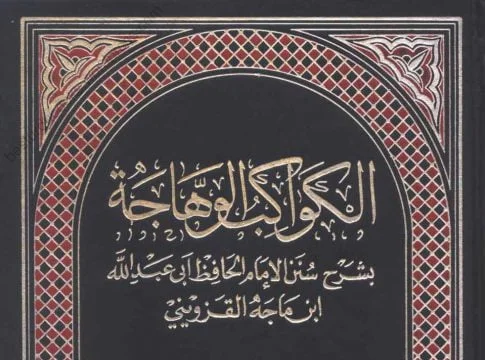 الكواكب الوهاجة
بشرح سنن الإمام الحافظ أبي عبد الله
ابن ماجه القزويني